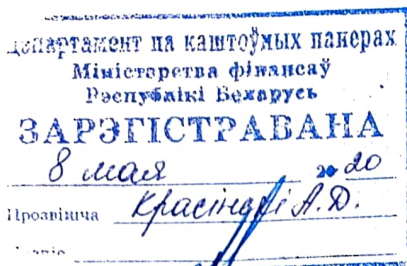 Дэпартамент па каштоўных паперах
Міністэрства фінансаў
Рэспублікі Беларусь
ЗАРЭГІСТРАВАНА
8 мая 2020
Прозвішча А.Д.